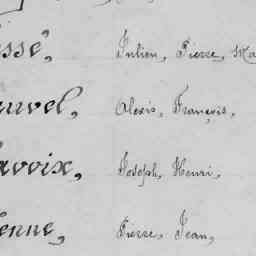 issé, Julien, Pierre, Ma
auvel, Alexis, François,
avoix, Joseph, Henri,
ienne, Pierre, Jean,